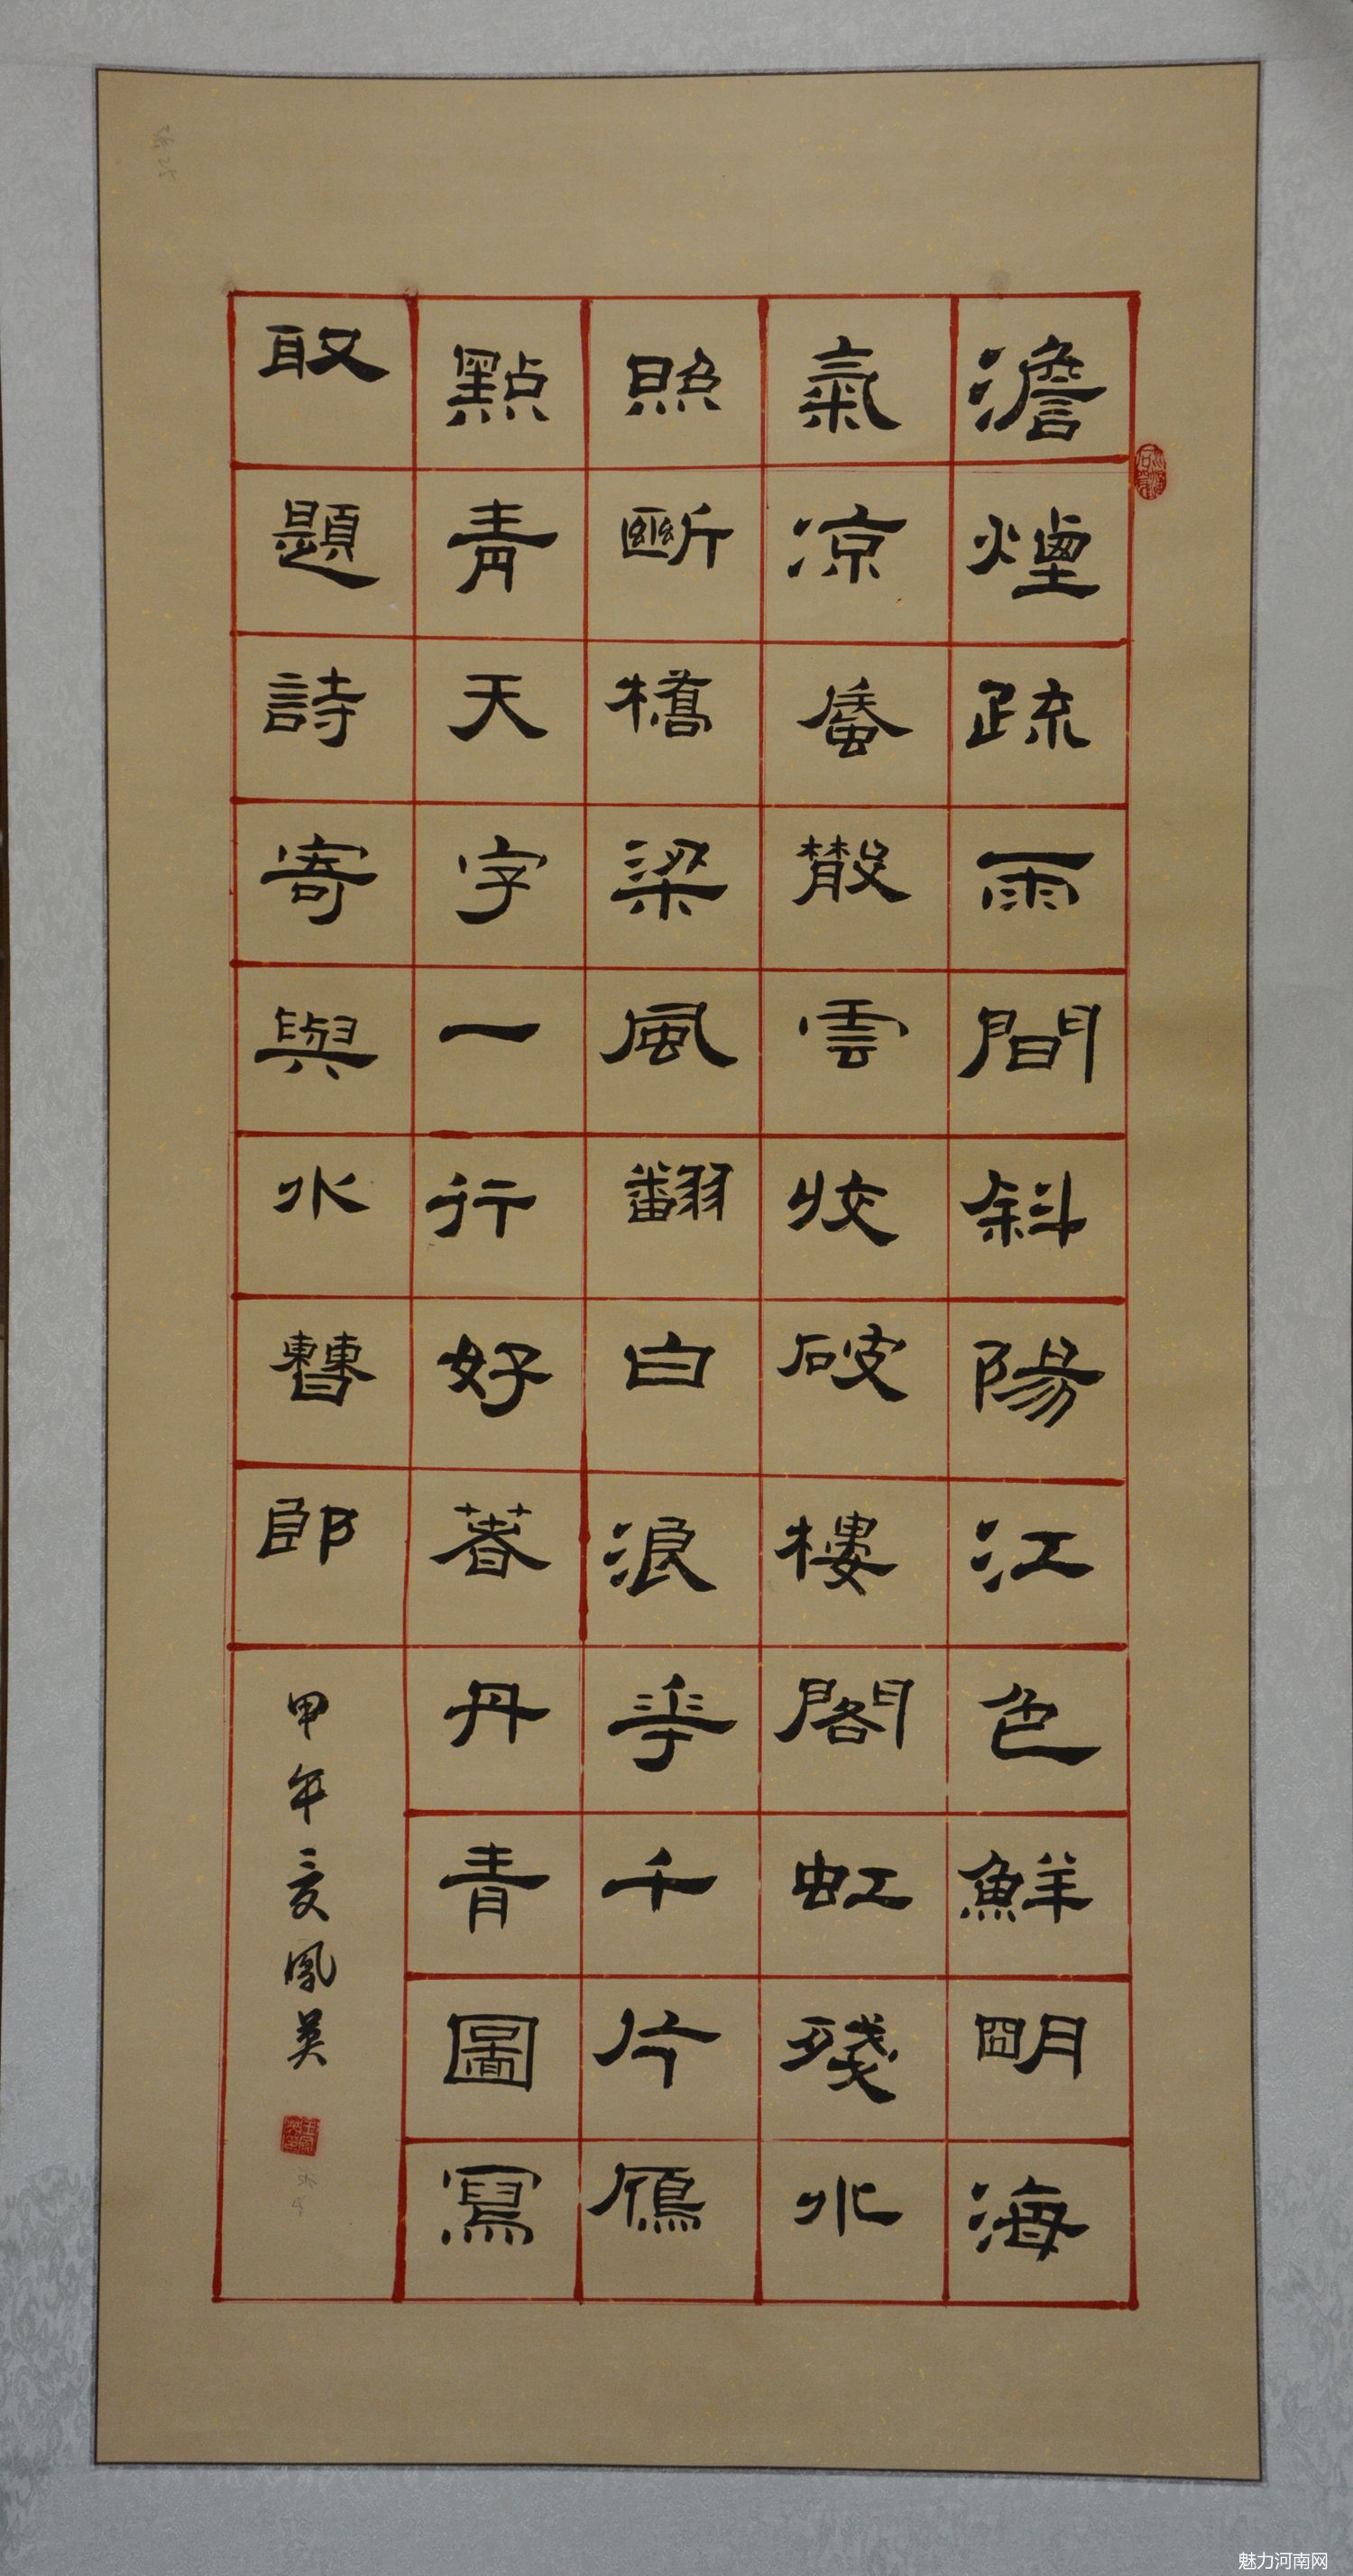 澹煙疏雨間斜陽江色鮮明海
氣涼蜃散雲收破樓閣虹殘水
照斷橋梁風翻白浪花千片雁
點青天字一行好著丹青圖寫
取題詩寄與水曹郎
甲午夏鳳英
魅力河南网